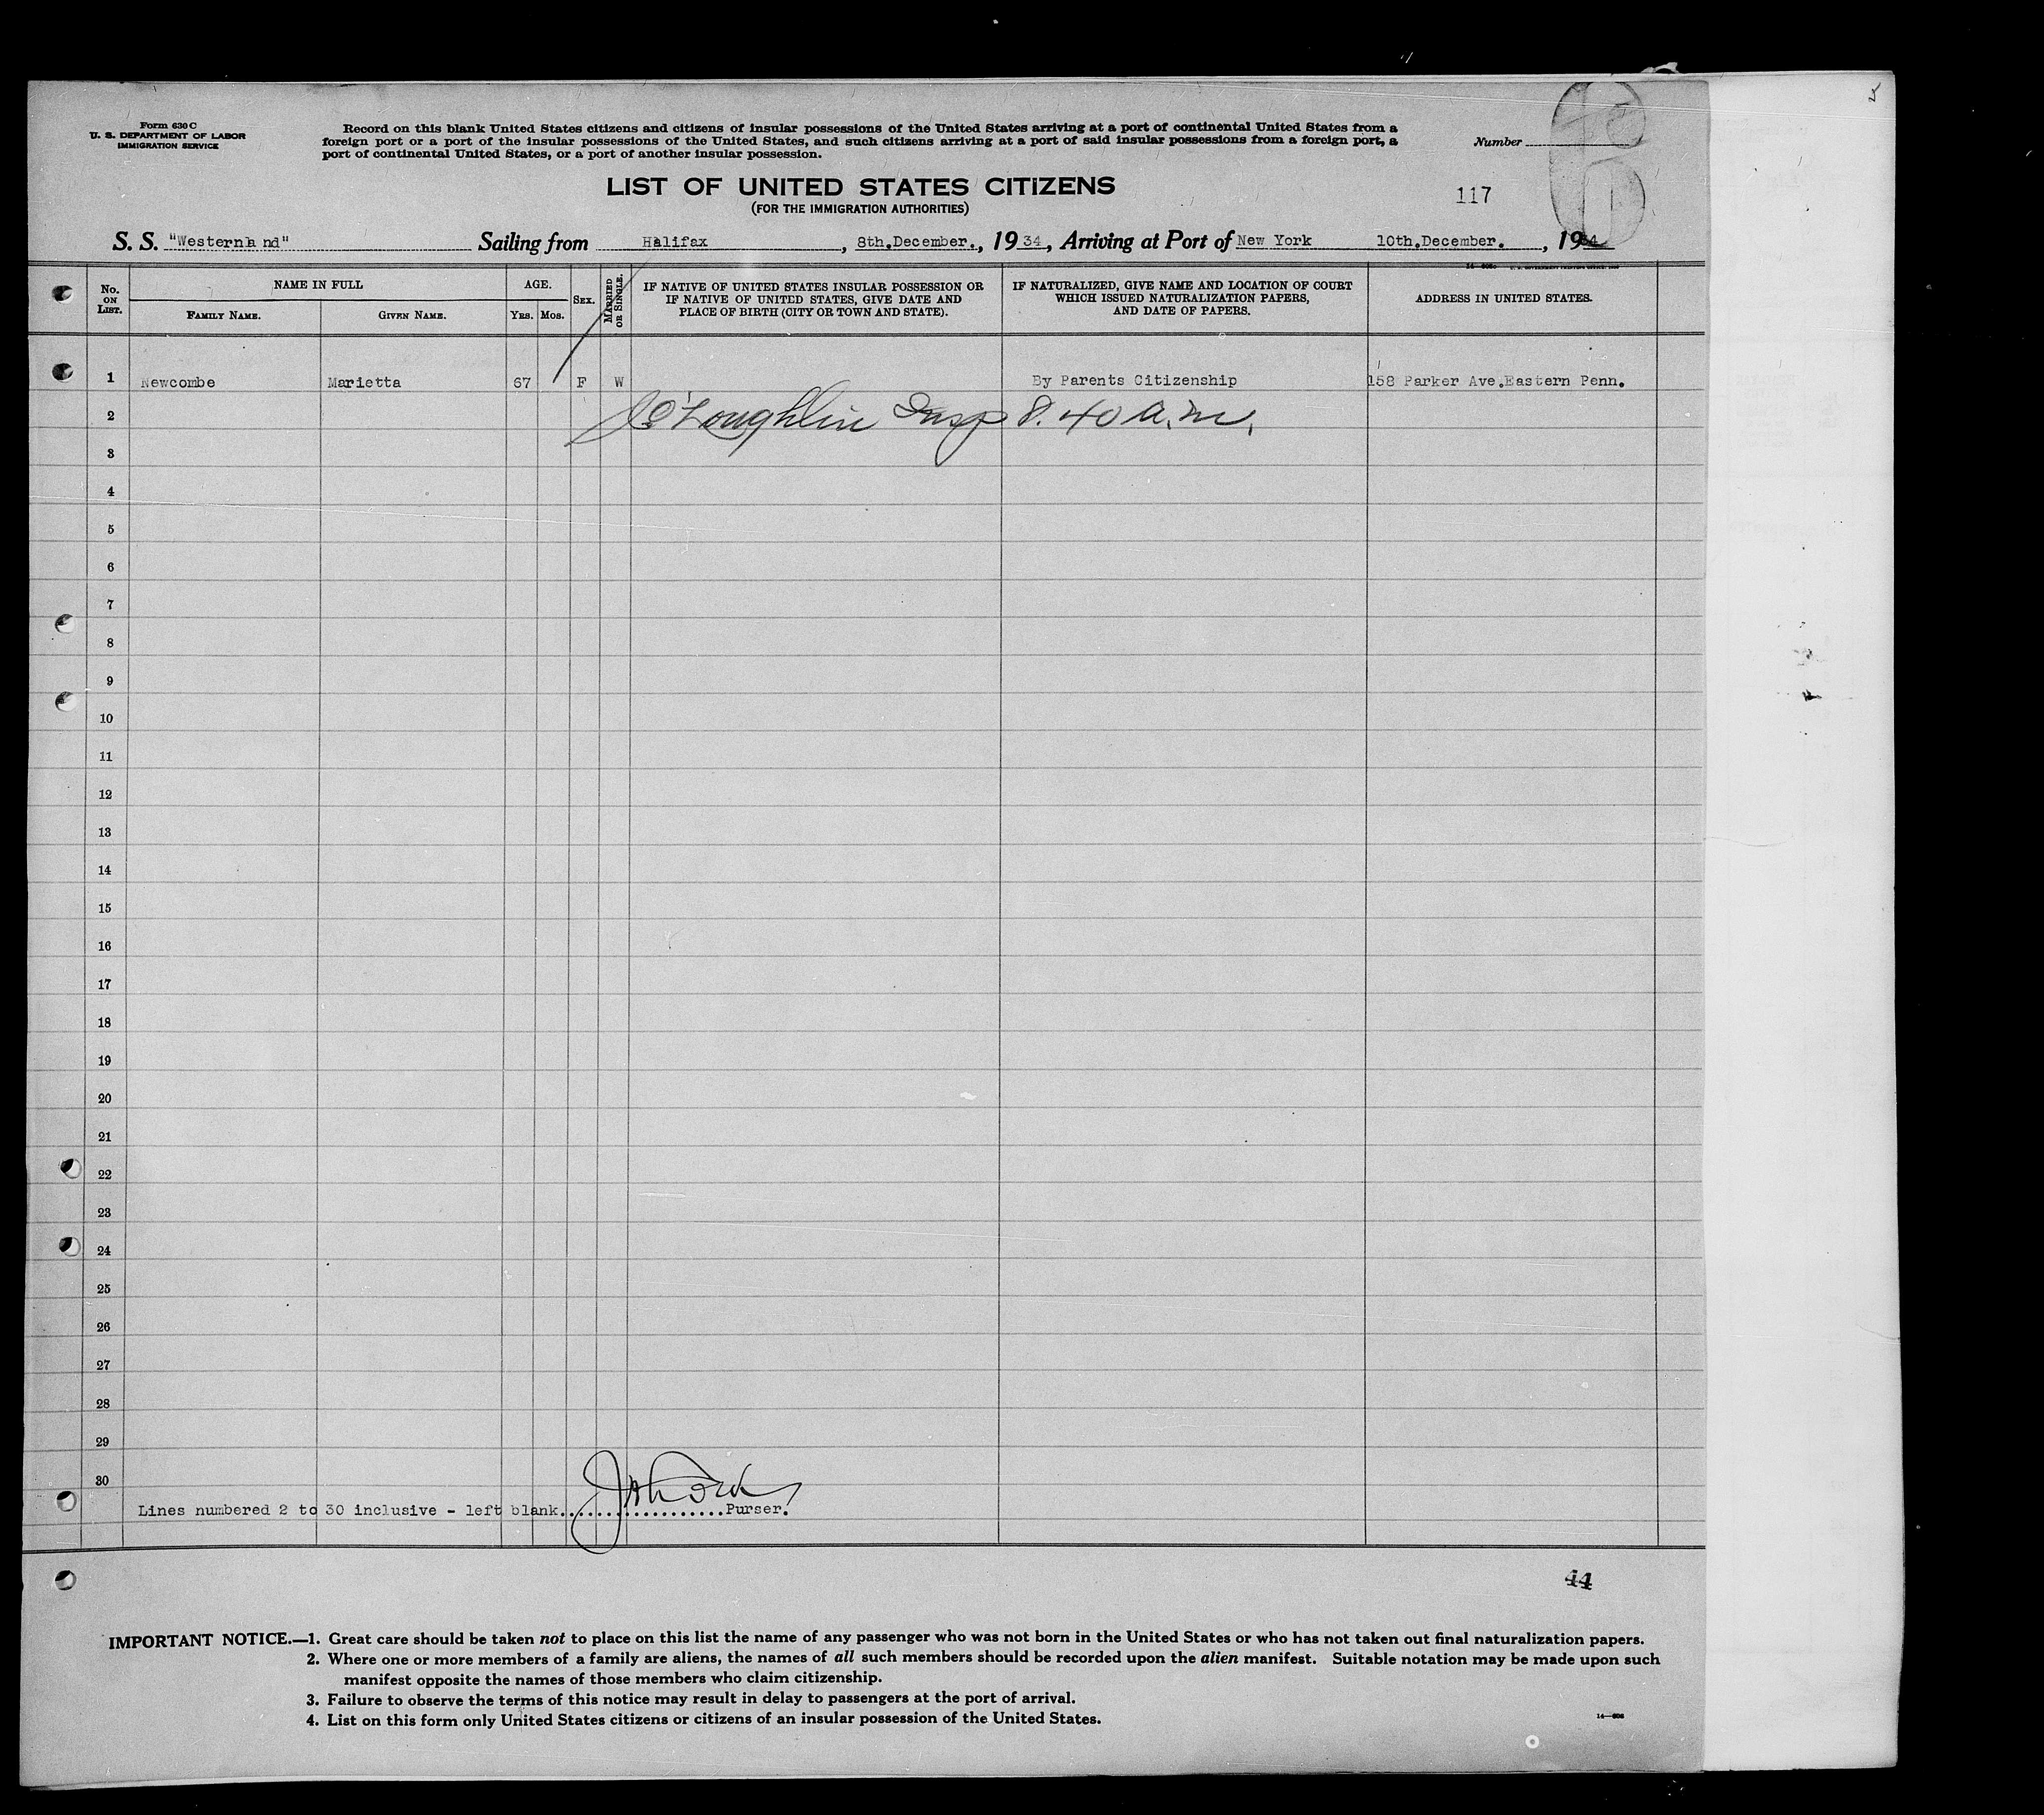 Form 630 C
U. S. DEPARTMENT OF LABOR
IMMIGRATION SERVICE
Record on this blank United States citizens and citizens of insular possessions of the United States arriving at a port of continental United States from a
foreign port or a port of the insular possessions of the United States, and such citizens arriving at a port of said insular possessions from a foreign port, a
port of continental United States, or a port of another insular possession.
Number
LIST OF UNITED STATES CITIZENS
(FOR THE IMMIGRATION AUTHORITIES)
117
S. S. "Westernla nd" Sailing from Halifax, 8th.December., 1934, Arriving at Port of New York 10th.December., 1934
No. ON LIST.
NAME IN FULL
FAMILY NAME.
GIVEN NAME.
AGE.
YRS. MOS.
SEX.
MARRIED OR SINGLE.
IF NATIVE OF UNITED STATES INSULAR POSSESSION OR
IF NATIVE OF UNITED STATES, GIVE DATE AND
PLACE OF BIRTH (CITY OR TOWN AND STATE).
IF NATURALIZED, GIVE NAME AND LOCATION OF COURT
WHICH ISSUED NATURALIZATION PAPERS,
AND DATE OF PAPERS.
ADDRESS IN UNITED STATES.
1 Newcombe Marietta 67 F W By Parents Citizenship 158 Parker Ave.Eastern Penn.
2 O'Loughlin Insp 8.40 a.m.
3
4
5
6
7
8
9
10
11
12
13
14
15
16
17
18
19
20
21
22
23
24
25
26
27
28
29
30
Lines numbered 2 to 30 inclusive - left blank..................Purser.
44
IMPORTANT NOTICE.—1. Great care should be taken not to place on this list the name of any passenger who was not born in the United States or who has not taken out final naturalization papers.
2. Where one or more members of a family are aliens, the names of all such members should be recorded upon the alien manifest. Suitable notation may be made upon such
manifest opposite the names of those members who claim citizenship.
3. Failure to observe the terms of this notice may result in delay to passengers at the port of arrival.
4. List on this form only United States citizens or citizens of an insular possession of the United States.